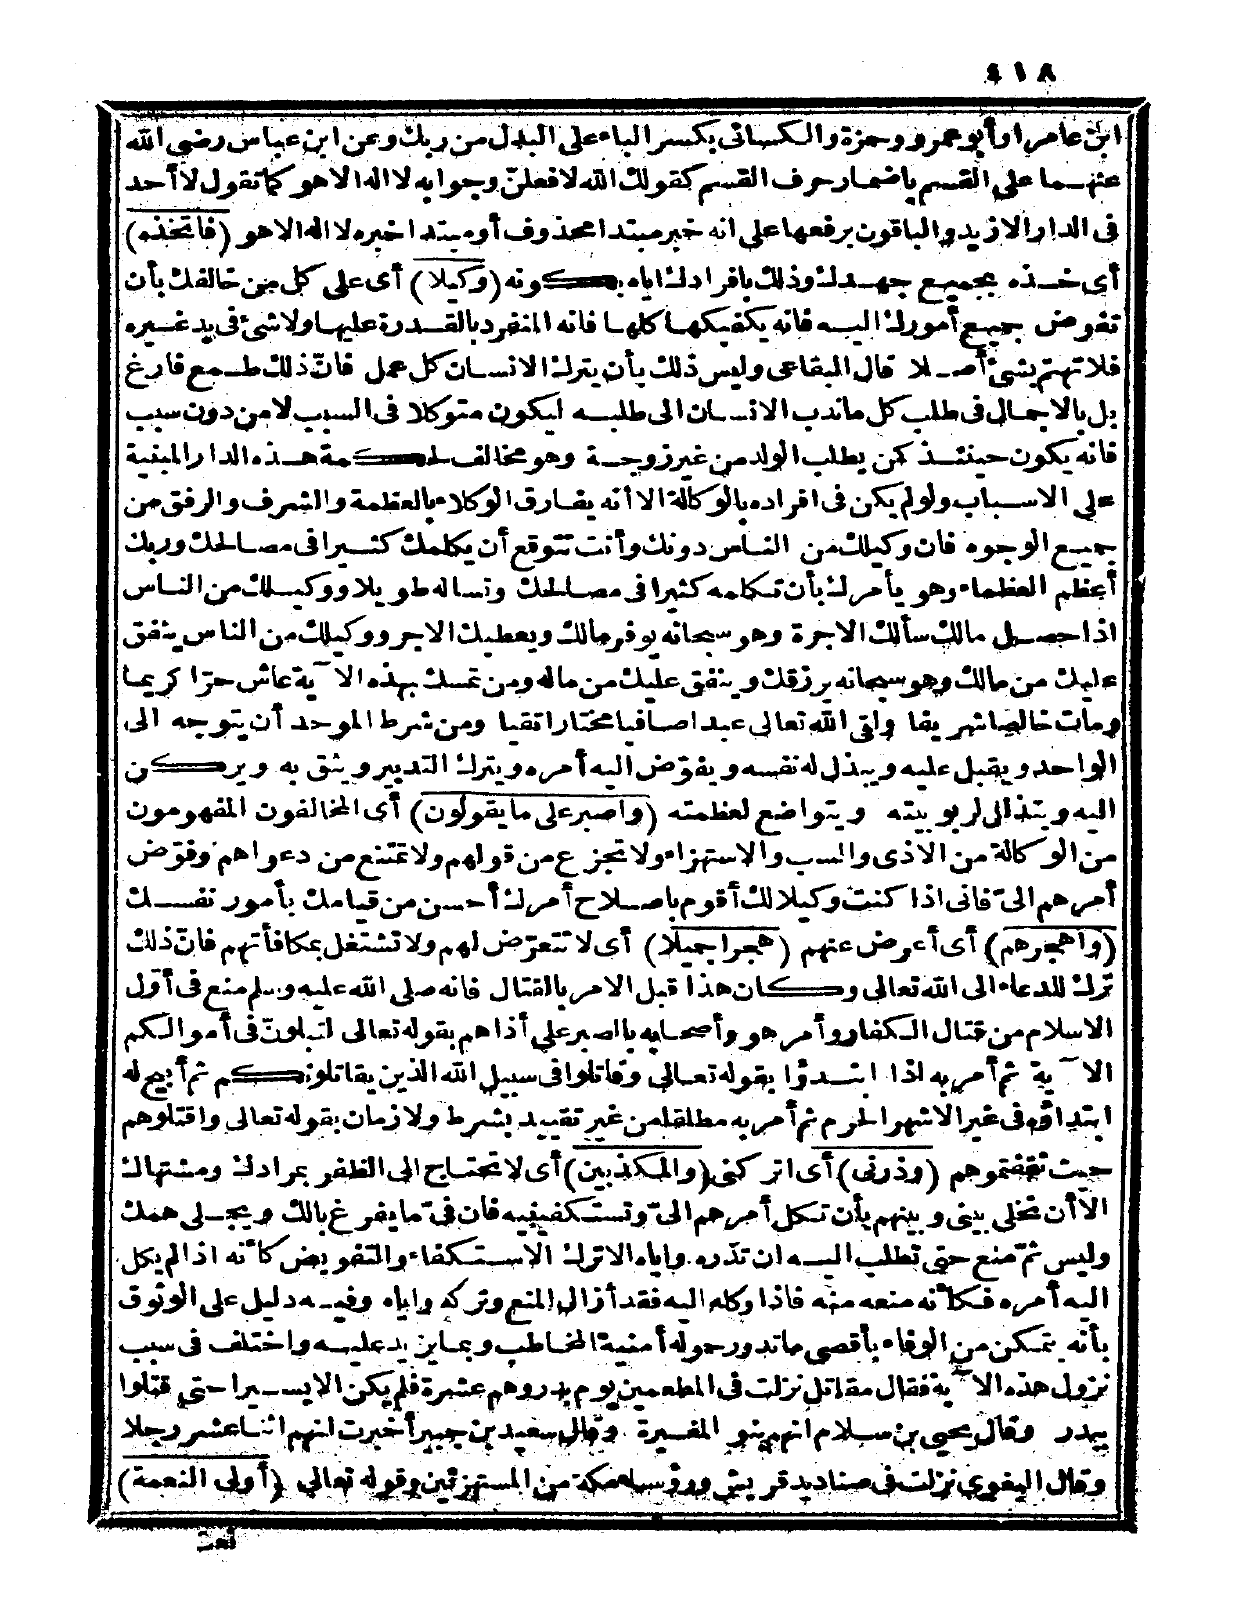 ٤١٨
ابن عامر اوأبو عمرو وحمزة والكسائى بكسر الباء على البدل من ربك وعن ابن عباس رضى الله
عنهما على القسم باضمار حرف القسم كقولك الله لافعلنّ وجوابه لا اله الا هو كما تقول لا أحد
فى الدار الازيد والباقون برفعها على انه خبر مبتدا محذوف أو مبتدا خبره لا اله الا هو (فاتخذه)
أى خذه بجميع جهدك وذلك بافرادك اياه بكونه (وكيلا) أى على كل من خالفك بأن
تفوض جميع أمورك اليه فانه يكفيكها كلها فانه المنفرد بالقدرة عليها ولا شئ فى يد غيره
فلا تهتم بشئ أصلا قال البقاعى وليس ذلك بأن يترك الانسان كل عمل فانّ ذلك طمع فارغ
بل بالاجمال فى طلب كل ما ندب الانسان الى طلبه ليكون متوكلا فى السبب لا من دون سبب
فانه يكون حينئذ كمن يطلب الولد من غير زوجة وهو مخالف لحكمة هذه الدار المبنية
على الاسباب ولو لم يكن فى افراده بالوكالة الا أنه يفارق الوكلاء بالعظمة والشرف والرفق من
جميع الوجوه فان وكيلك من الناس دونك وأنت تتوقع أن يكلمك كثيرا فى مصالحك وربك
أعظم العظماء وهو يأمرك بأن تكلمه كثيرا فى مصالحك وتساله طويلا ووكيلك من الناس
اذا حصل مالك سألك الاجرة وهو سبحانه يوفر مالك ويعطيك الاجر ووكيلك من الناس ينفق
عليك من مالك وهو سبحانه يرزقك وينفق عليك من ماله ومن تمسك بهذه الآية عاش حرّا كريما
ومات خالصا شريفا ولقى الله تعالى عبدا صافيا مختارا تقيا ومن شرط الموحد أن يتوجه الى
الواحد ويقبل عليه ويبذل له نفسه ويفوّض اليه أمره ويترك التدبير ويثق به ويركن
اليه ويتذلل لربوبيته ويتواضع لعظمته (واصبر على ما يقولون) أى المخالفون المفهومون
من الوكالة من الاذى والسب والاستهزاء ولا تجزع من قولهم ولا تمتنع من دعواهم وفوّض
أمرهم الىّ فانى اذا كنت وكيلا لك أقوم باصلاح أمرك أحسن من قيامك بأمور نفسك
(واهجرهم) أى أعرض عنهم (هجرا جميلا) أى لا تتعرّض لهم ولا تشتغل بمكافأتهم فانّ ذلك
ترك للدعاء الى الله تعالى وكان هذا قبل الامر بالقتال فانه صلى الله عليه وسلم منع فى أوّل
الاسلام من قتال الكفار وأمر هو وأصحابه بالصبر على أذاهم بقوله تعالى لتبلونّ فى أموالكم
الآية ثم أمر به اذا ابتدؤا بقوله تعالى وقاتلوا فى سبيل الله الذين يقاتلونكم ثم أبيح له
ابتداؤه فى غير الاشهر الحرم ثم أمر به مطلقا من غير تقييد بشرط ولا زمان بقوله تعالى واقتلوهم
حيث ثقفتموهم (وذرنى) أى اتركنى (والمكذبين) أى لا تحتاج الى الظفر بمرادك ومشتهاك
الا أن تخلى بينى وبينهم بأن تكل أمرهم الىّ وتستكفينيه فان فىّ ما يفرغ بالك ويجلى همك
وليس ثمّ منع حتى تطلب اليه ان تذره واياه الا ترك الاستكفاء والتفويض كأنه اذا لم يكل
اليه أمره فكأنه منعه منه فاذا وكله اليه فقد أزال المنع وتركه واياه وفيه دليل على الوثوق
بأنه يتمكن من الوفاء بأقصى ما تدور حوله أمنية المخاطب وبما يزيد عليه واختلف فى سبب
نزول هذه الآية فقال مقاتل نزلت فى المطعمين يوم بدر وهم عشرة فلم يكن الا يسيرا حتى قتلوا
ببدر وقال يحيى بن سلام انهم بنو المغيرة وقال سعيد بن جبير أخبرت انهم اثنا عشر رجلا
وقال البغوى نزلت فى صناديد قريش ورؤسا مكة من المستهزئين وقوله تعالى (أولى النعمة)
نعت